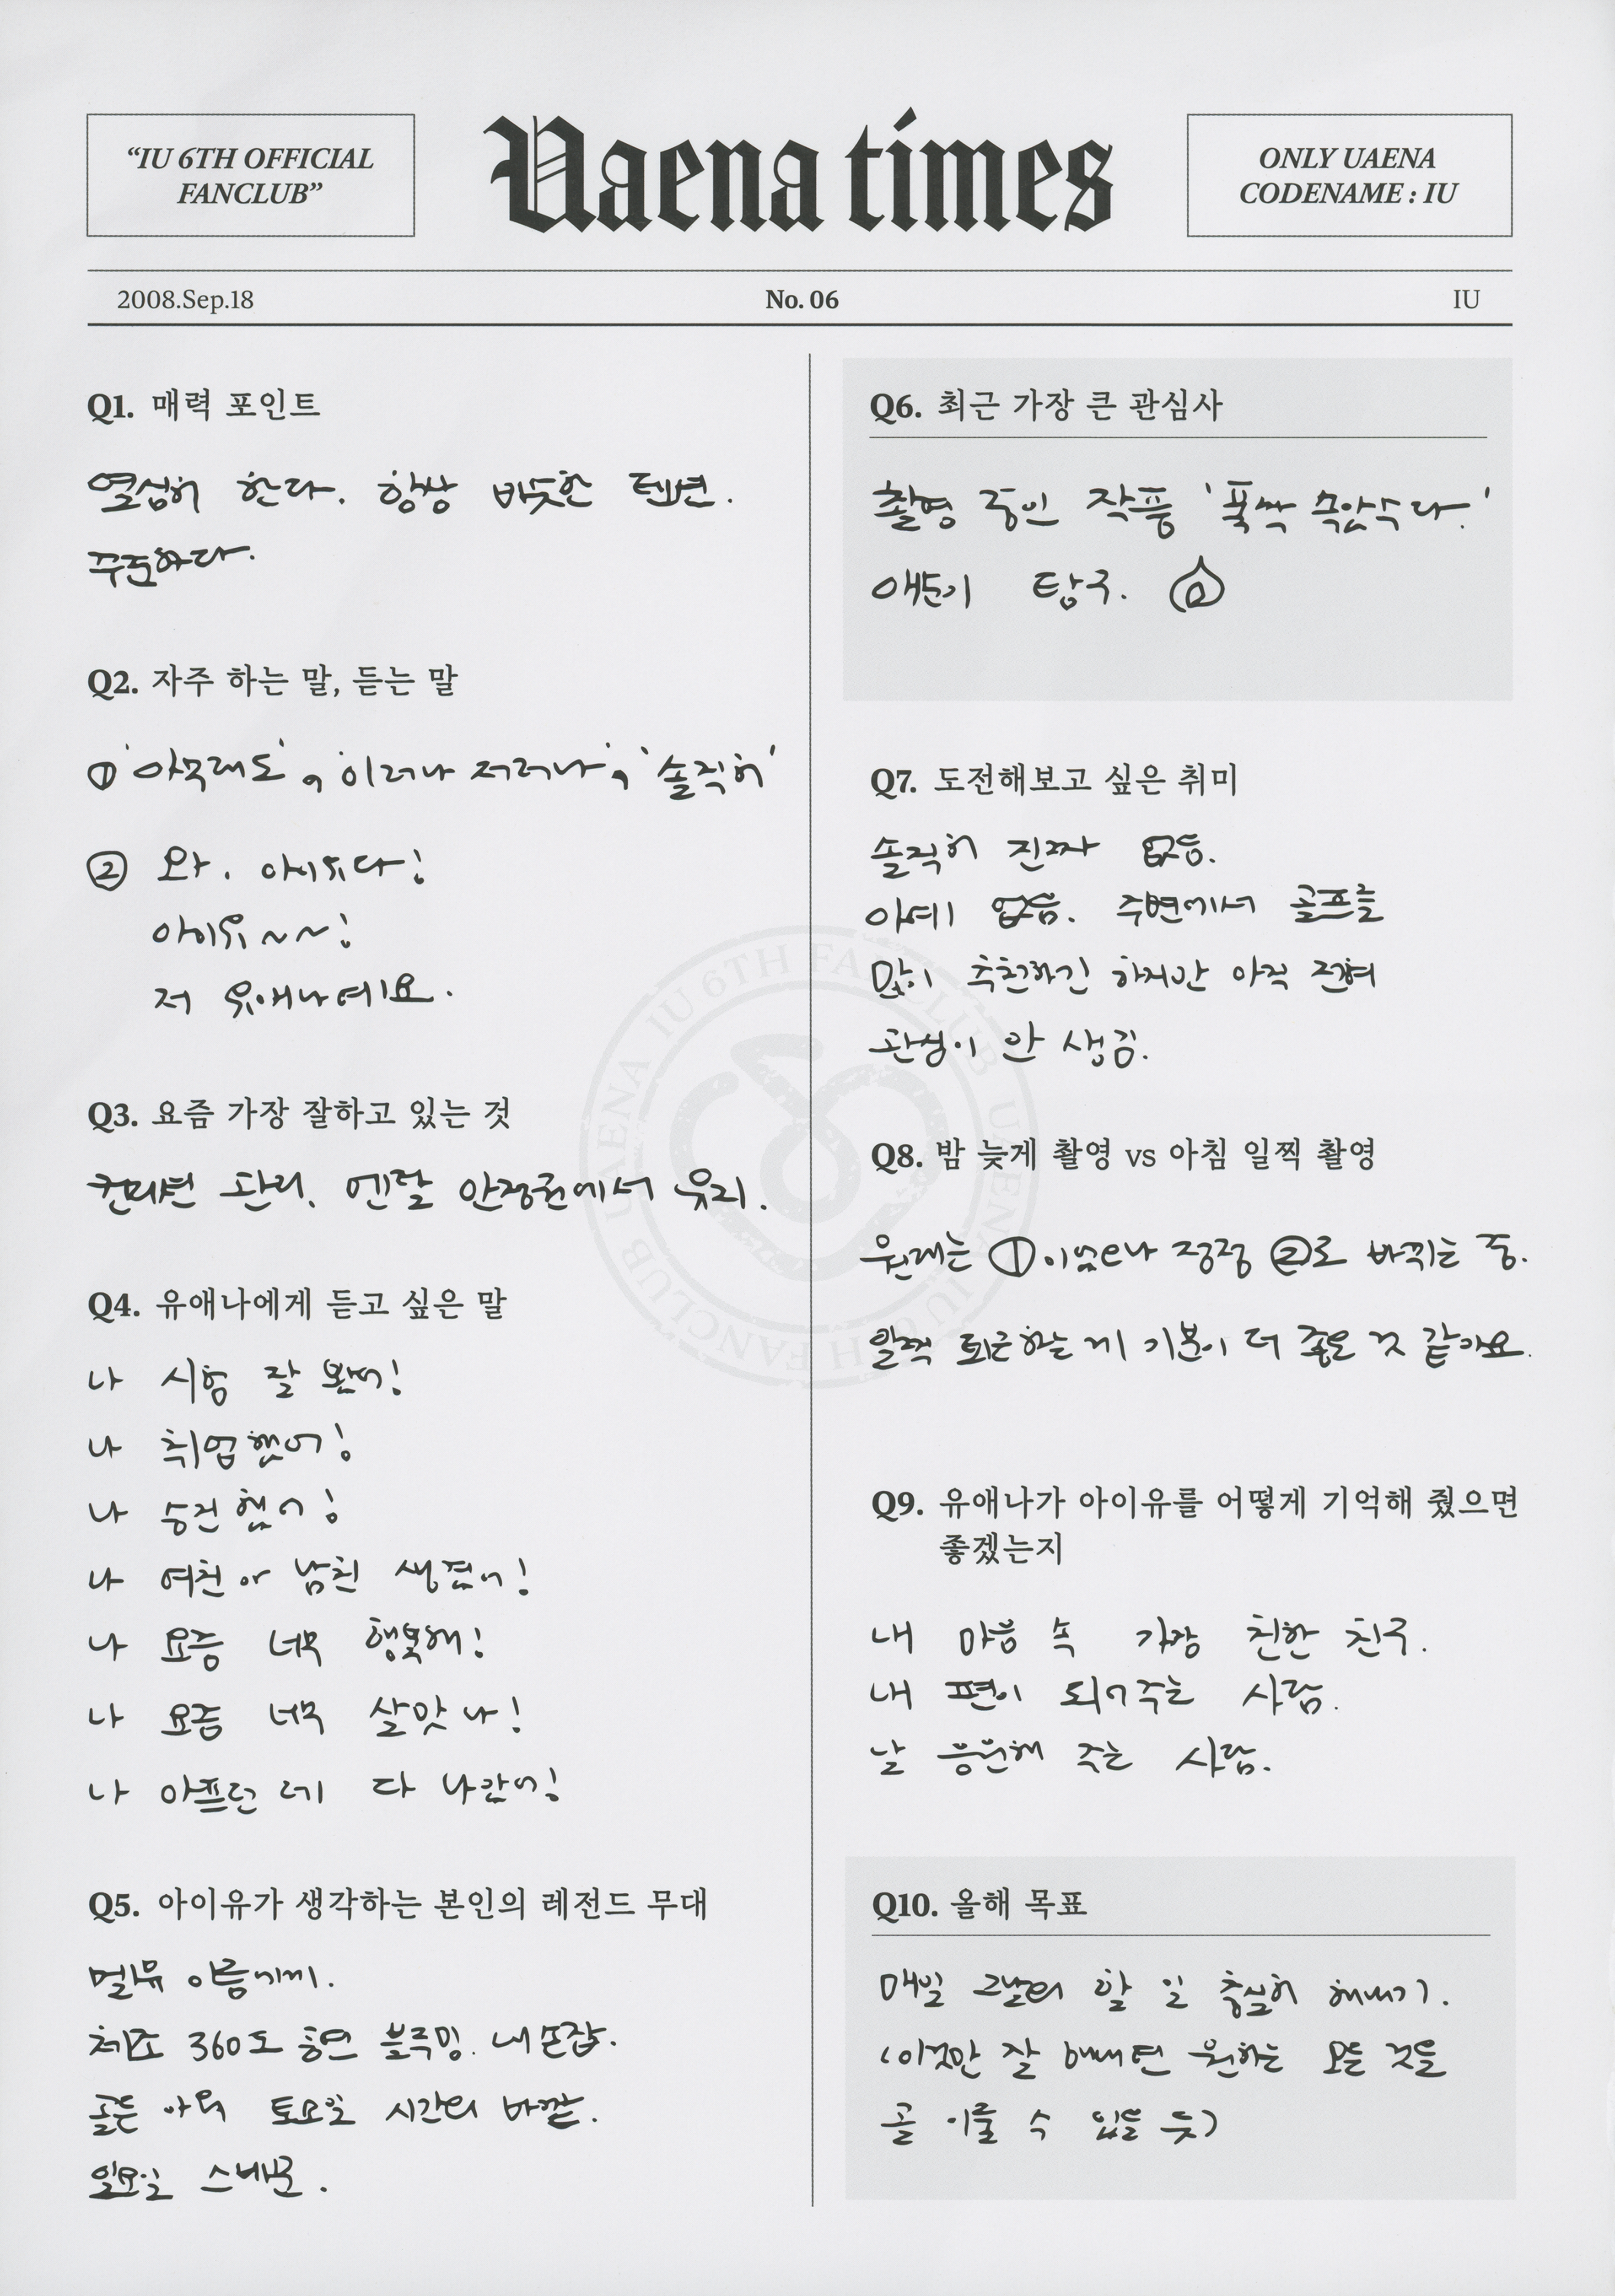 “IU 6TH OFFICIAL
FANCLUB”
Uaena times
ONLY UAENA
CODENAME : IU
2008.Sep.18
No. 06
IU
Q1. 매력 포인트
열심히 한다. 항상 비슷한 텐션.
꾸준하다.
Q2. 자주 하는 말, 듣는 말
① '아무래도', '이러나 저러나', '솔직히'
② 와. 아이유다!
아이유~~!
저 유애나예요.
Q3. 요즘 가장 잘하고 있는 것
컨디션 관리. 멘탈 안정권에서 유지.
Q4. 유애나에게 듣고 싶은 말
나 시험 잘 봤어!
나 취업했어!
나 승진했어!
나 여친 or 남친 생겼어!
나 요즘 너무 행복해!
나 요즘 너무 살맛 나!
나 아프던 데 다 나았어!
Q5. 아이유가 생각하는 본인의 레전드 무대
멜뮤 이름에게.
체조 360도 공연 블루밍. 내 손을 잡.
골든 아워 토요일 시간의 바깥.
일요일 스바문.
Q6. 최근 가장 큰 관심사
촬영 중인 작품 '폭싹 속았수다.'
애순이 탐구.
Q7. 도전해보고 싶은 취미
솔직히 진짜 없음.
아예 없음. 주변에서 골프를
많이 추천하긴 하지만 아직 전혀
관심이 안 생김.
Q8. 밤 늦게 촬영 vs 아침 일찍 촬영
원래는 ①이었으나 점점 ②로 바뀌는 중.
일찍 퇴근하는 게 기분이 더 좋은 것 같아요.
Q9. 유애나가 아이유를 어떻게 기억해 줬으면
좋겠는지
내 마음 속 가장 친한 친구.
내 편이 되어주는 사람.
날 응원해 주는 사람.
Q10. 올해 목표
매일 그날의 할 일 충실히 해내기.
(이것만 잘 해내면 원하는 모든 것들
곧 이룰 수 있을 듯)
UAENA IU 6TH FANCLUB UAENA IU 6TH FANCLUB